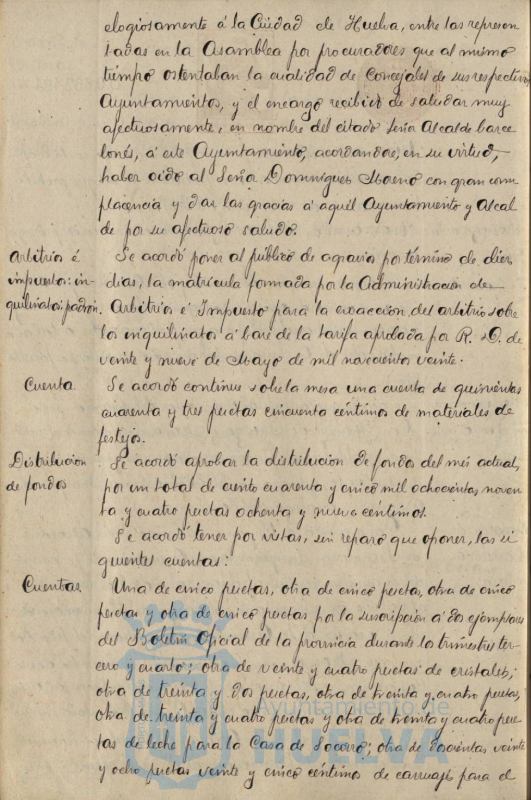 elogiosamente á la Ciudad de Huelva, entre las represen
tadas en la Asamblea por procuradores que al mismo
tiempo ostentaban la cualidad de Concejales de sus respectivos
Ayuntamientos, y el encargo recibido de saludar muy
afectuosamente, en nombre del citado Señor Alcalde barce
lonés, á este Ayuntamiento, acordandose, en su virtud,
haber oido al Señor Dominguez Moreno con gran com
placencia y dar las gracias á aquél Ayuntamiento y Alcal
de por su afectuoso saludo.
Arbitrios é
impuesto: in-
quilinato: padron.
Se acordó poner al público de agravio por término de diez
dias, la matrícula formada por la Administración de
Arbitrios é Impuesto para la exacción del arbitrio sobre
los inquilinatos á base de la tarifa aprobada por R. O. de
veinte y nueve de Mayo de mil novecientos veinte.
Cuenta
Se acordó continue sobre la mesa una cuenta de quinientas
cuarenta y tres pesetas cincuenta céntimos de materiales de
festejos.
Distribucion
de fondos
Se acordó aprobar la distribucion de fondos del mes actual,
por un total de ciento cuarenta y cinco mil ochocientas noven
ta y cuatro pesetas ochenta y nueve céntimos.
Se acordó tener por vistas, sin reparo que oponer, las si
guientes cuentas:
Cuentas
Una de cinco pesetas, otra de cinco pesetas, otra de cinco
pesetas y otra de cinco pesetas por la suscripción á dos ejemplares
del Boletin Oficial de la provincia durante los trimestres ter
cero y cuarto; otra de veinte y cuatro pesetas de cristales;
otra de treinta y dos pesetas, otra de treinta y cuatro pesetas,
otra de treinta y cuatro pesetas y otra de treinta y cuatro pese
tas de leche para la Casa de Socorro; otra de doscientas veinte
y ocho pesetas veinte y cinco céntimos de carruajes para el
Ayuntamiento de
HUELVA